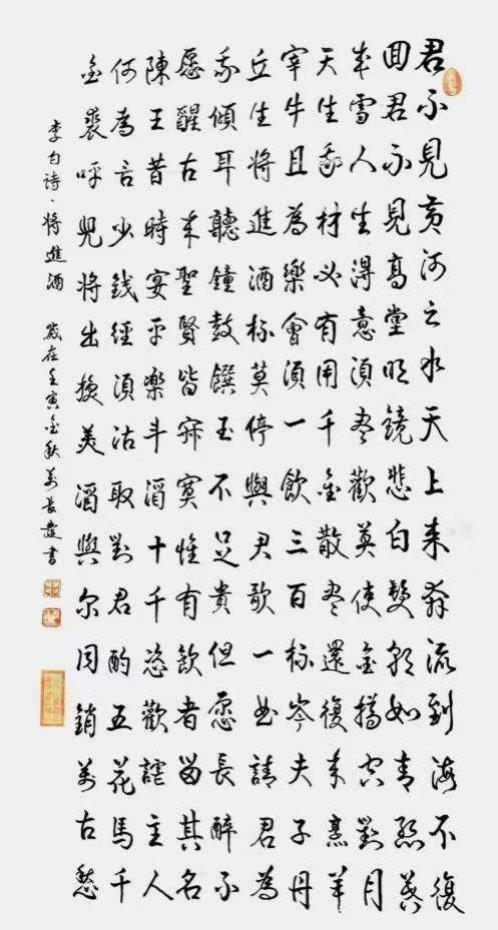 君不見黃河之水天上来奔流到海不復
回君不見高堂明鏡悲白髮朝如青絲暮
成雪人生得意須尽歡莫使金樽空對月
天生我材必有用千金散尽還復来烹羊
宰牛且為樂會須一飲三百杯岑夫子丹
丘生将進酒杯莫停與君歌一曲請君為
我傾耳聽鐘鼓饌玉不足貴但愿長醉不
愿醒古来聖賢皆寂寞惟有飲者留其名
陳王昔時宴平樂斗酒十千恣歡謔主人
何為言少錢經須沽取對君酌五花馬千
金裘呼兒将出換美酒與尔同銷萬古愁
李白诗、将進酒 歲在壬寅金秋 長書